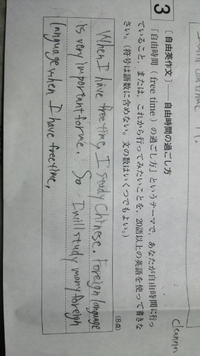 3 [自由英作文] 自由時間の過ごし方
「自由時間 (free time) の過ごし方」というテーマで，あなたが自由時間に行っ
ていること，または，これから行ってみたいことを，20語以上の英語を使って書きな
さい。(符号は語数に含めない。文の数はいくつでもよい。)
(8点)
When I have free time, I study Chinese. Foreign language
is very important for me. So I will study many foreign
language when I have free time.